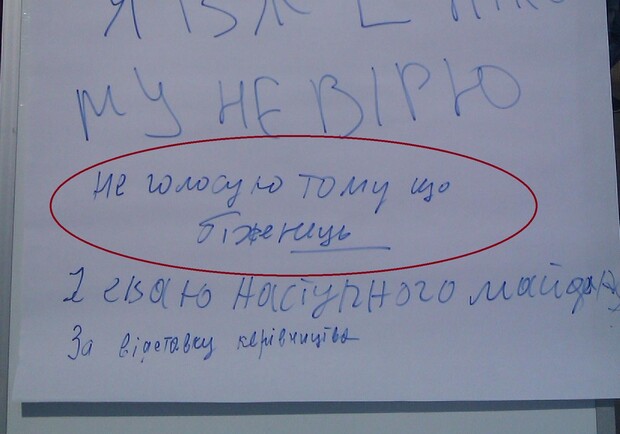 Я ВЖЕ НІКО
МУ НЕ ВІРЮ
не голосую тому що
біженець
наступного майдану
За відставку керівництва